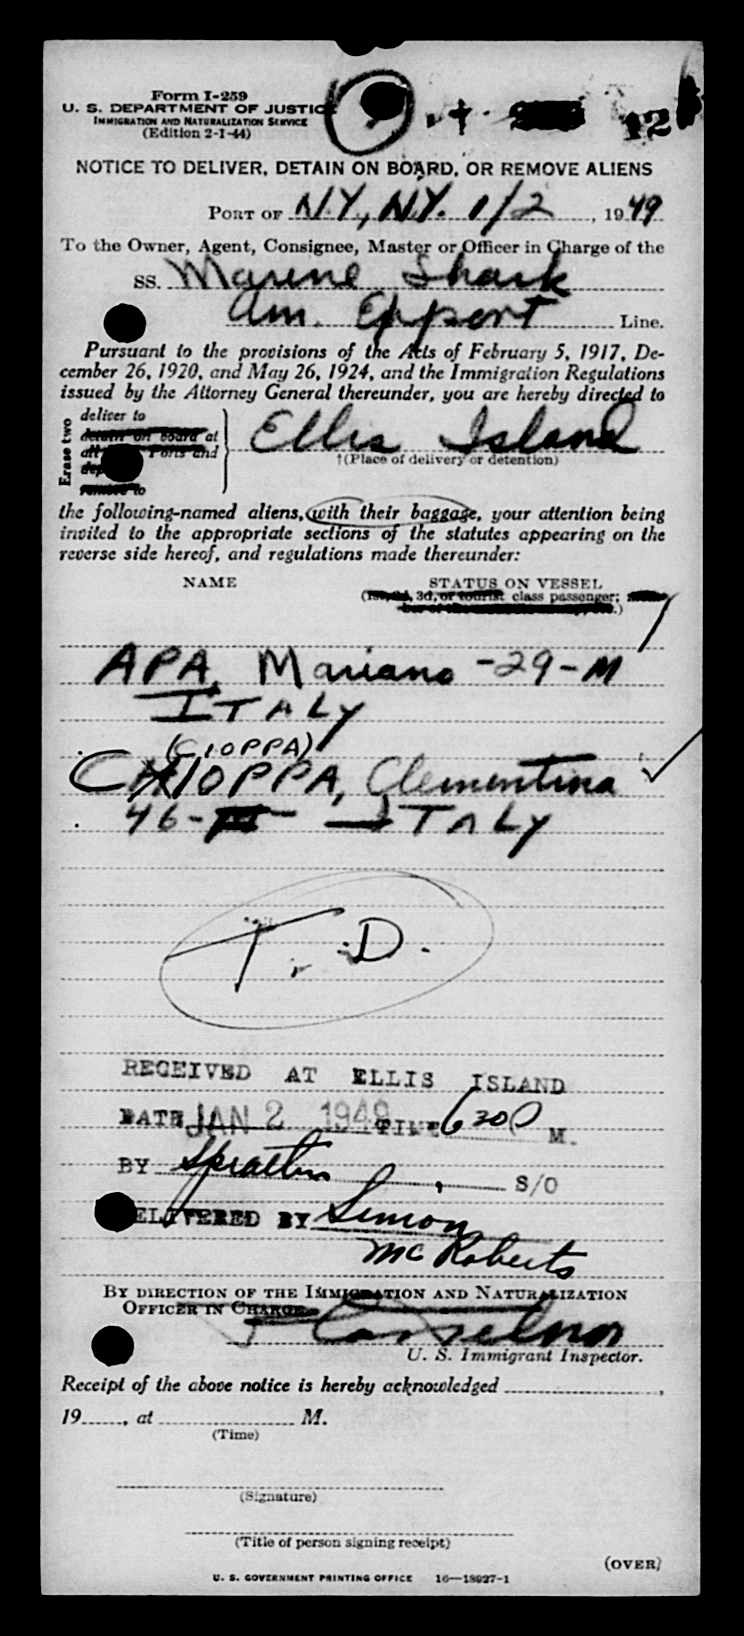 Form I-259
U. S. DEPARTMENT OF JUSTICE
IMMIGRATION AND NATURALIZATION SERVICE
(Edition 2-1-44)
12
NOTICE TO DELIVER, DETAIN ON BOARD, OR REMOVE ALIENS
PORT OF N.Y., N.Y. 1/2, 1949
To the Owner, Agent, Consignee, Master or Officer in Charge of the
SS. Marine Shark
Am. Export Line.
Pursuant to the provisions of the Acts of February 5, 1917, De-
cember 26, 1920, and May 26, 1924, and the Immigration Regulations
issued by the Attorney General thereunder, you are hereby directed to
Erase two
deliver to
detain on board at
Ports and
remove to
Ellis Island
†(Place of delivery or detention)
the following-named aliens, with their baggage, your attention being
invited to the appropriate sections of the statutes appearing on the
reverse side hereof, and regulations made thereunder:
NAME STATUS ON VESSEL
3d, or tourist class passenger;
APA, Mariano -29-M
ITALY
(CIOPPA)
CHIOPPA, Clementina
46- ITALY
T. D.
RECEIVED AT ELLIS ISLAND
DATE JAN 2 1949 TIME 630 P M.
BY S/O
DELIVERED BY Simon
McRoberts
BY DIRECTION OF THE IMMIGRATION AND NATURALIZATION
OFFICER IN CHARGE
U. S. Immigrant Inspector.
Receipt of the above notice is hereby acknowledged ,
19 , at M.
(Time)
(Signature)
(Title of person signing receipt)
(OVER)
U. S. GOVERNMENT PRINTING OFFICE 16—18927-1